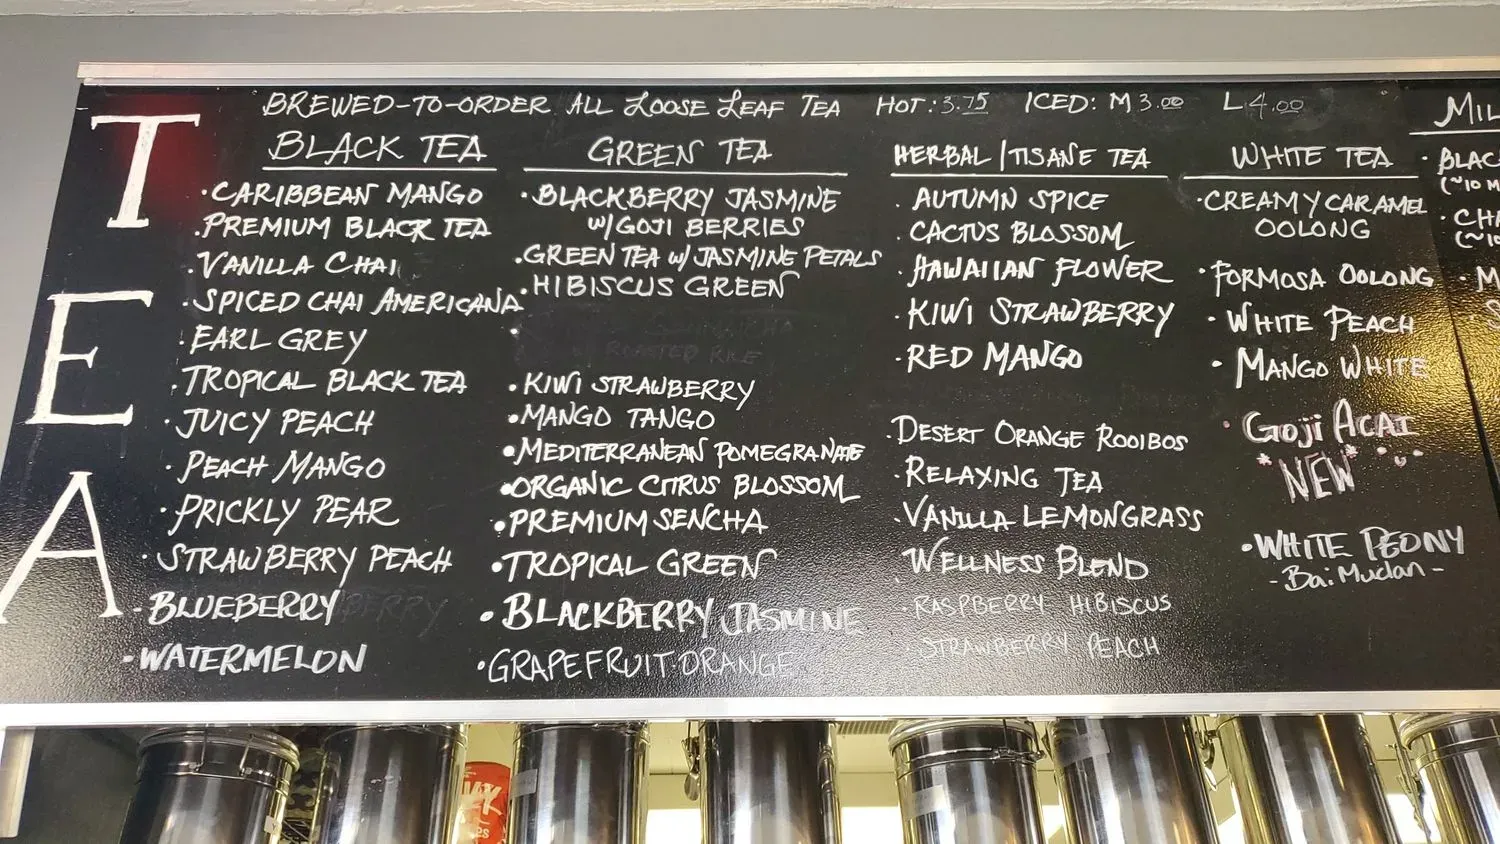 TEA
BREWED-TO-ORDER ALL LOOSE LEAF TEA HOT: 3.75 ICED: M 3.00 L 4.00
BLACK TEA
· CARIBBEAN MANGO
· PREMIUM BLACK TEA
· VANILLA CHAI
· SPICED CHAI AMERICANA
· EARL GREY
· TROPICAL BLACK TEA
· JUICY PEACH
· PEACH MANGO
· PRICKLY PEAR
· STRAWBERRY PEACH
· BLUEBERRY
· WATERMELON
GREEN TEA
· BLACKBERRY JASMINE
W/GOJI BERRIES
· GREEN TEA W/ JASMINE PETALS
· HIBISCUS GREEN
ROASTED RICE
· KIWI STRAWBERRY
· MANGO TANGO
· MEDITERRANEAN POMEGRANATE
· ORGANIC CITRUS BLOSSOM
· PREMIUM SENCHA
· TROPICAL GREEN
· BLACKBERRY JASMINE
· GRAPEFRUIT ORANGE
HERBAL/TISANE TEA
· AUTUMN SPICE
· CACTUS BLOSSOM
· HAWAIIAN FLOWER
· KIWI STRAWBERRY
· RED MANGO
· DESERT ORANGE ROOIBOS
· RELAXING TEA
· VANILLA LEMONGRASS
· WELLNESS BLEND
· RASPBERRY HIBISCUS
STRAWBERRY PEACH
WHITE TEA
· CREAMY CARAMEL
OOLONG
· FORMOSA OOLONG
· WHITE PEACH
· MANGO WHITE
· GOJI ACAI
*NEW*
· WHITE PEONY
- Bai Mudan -